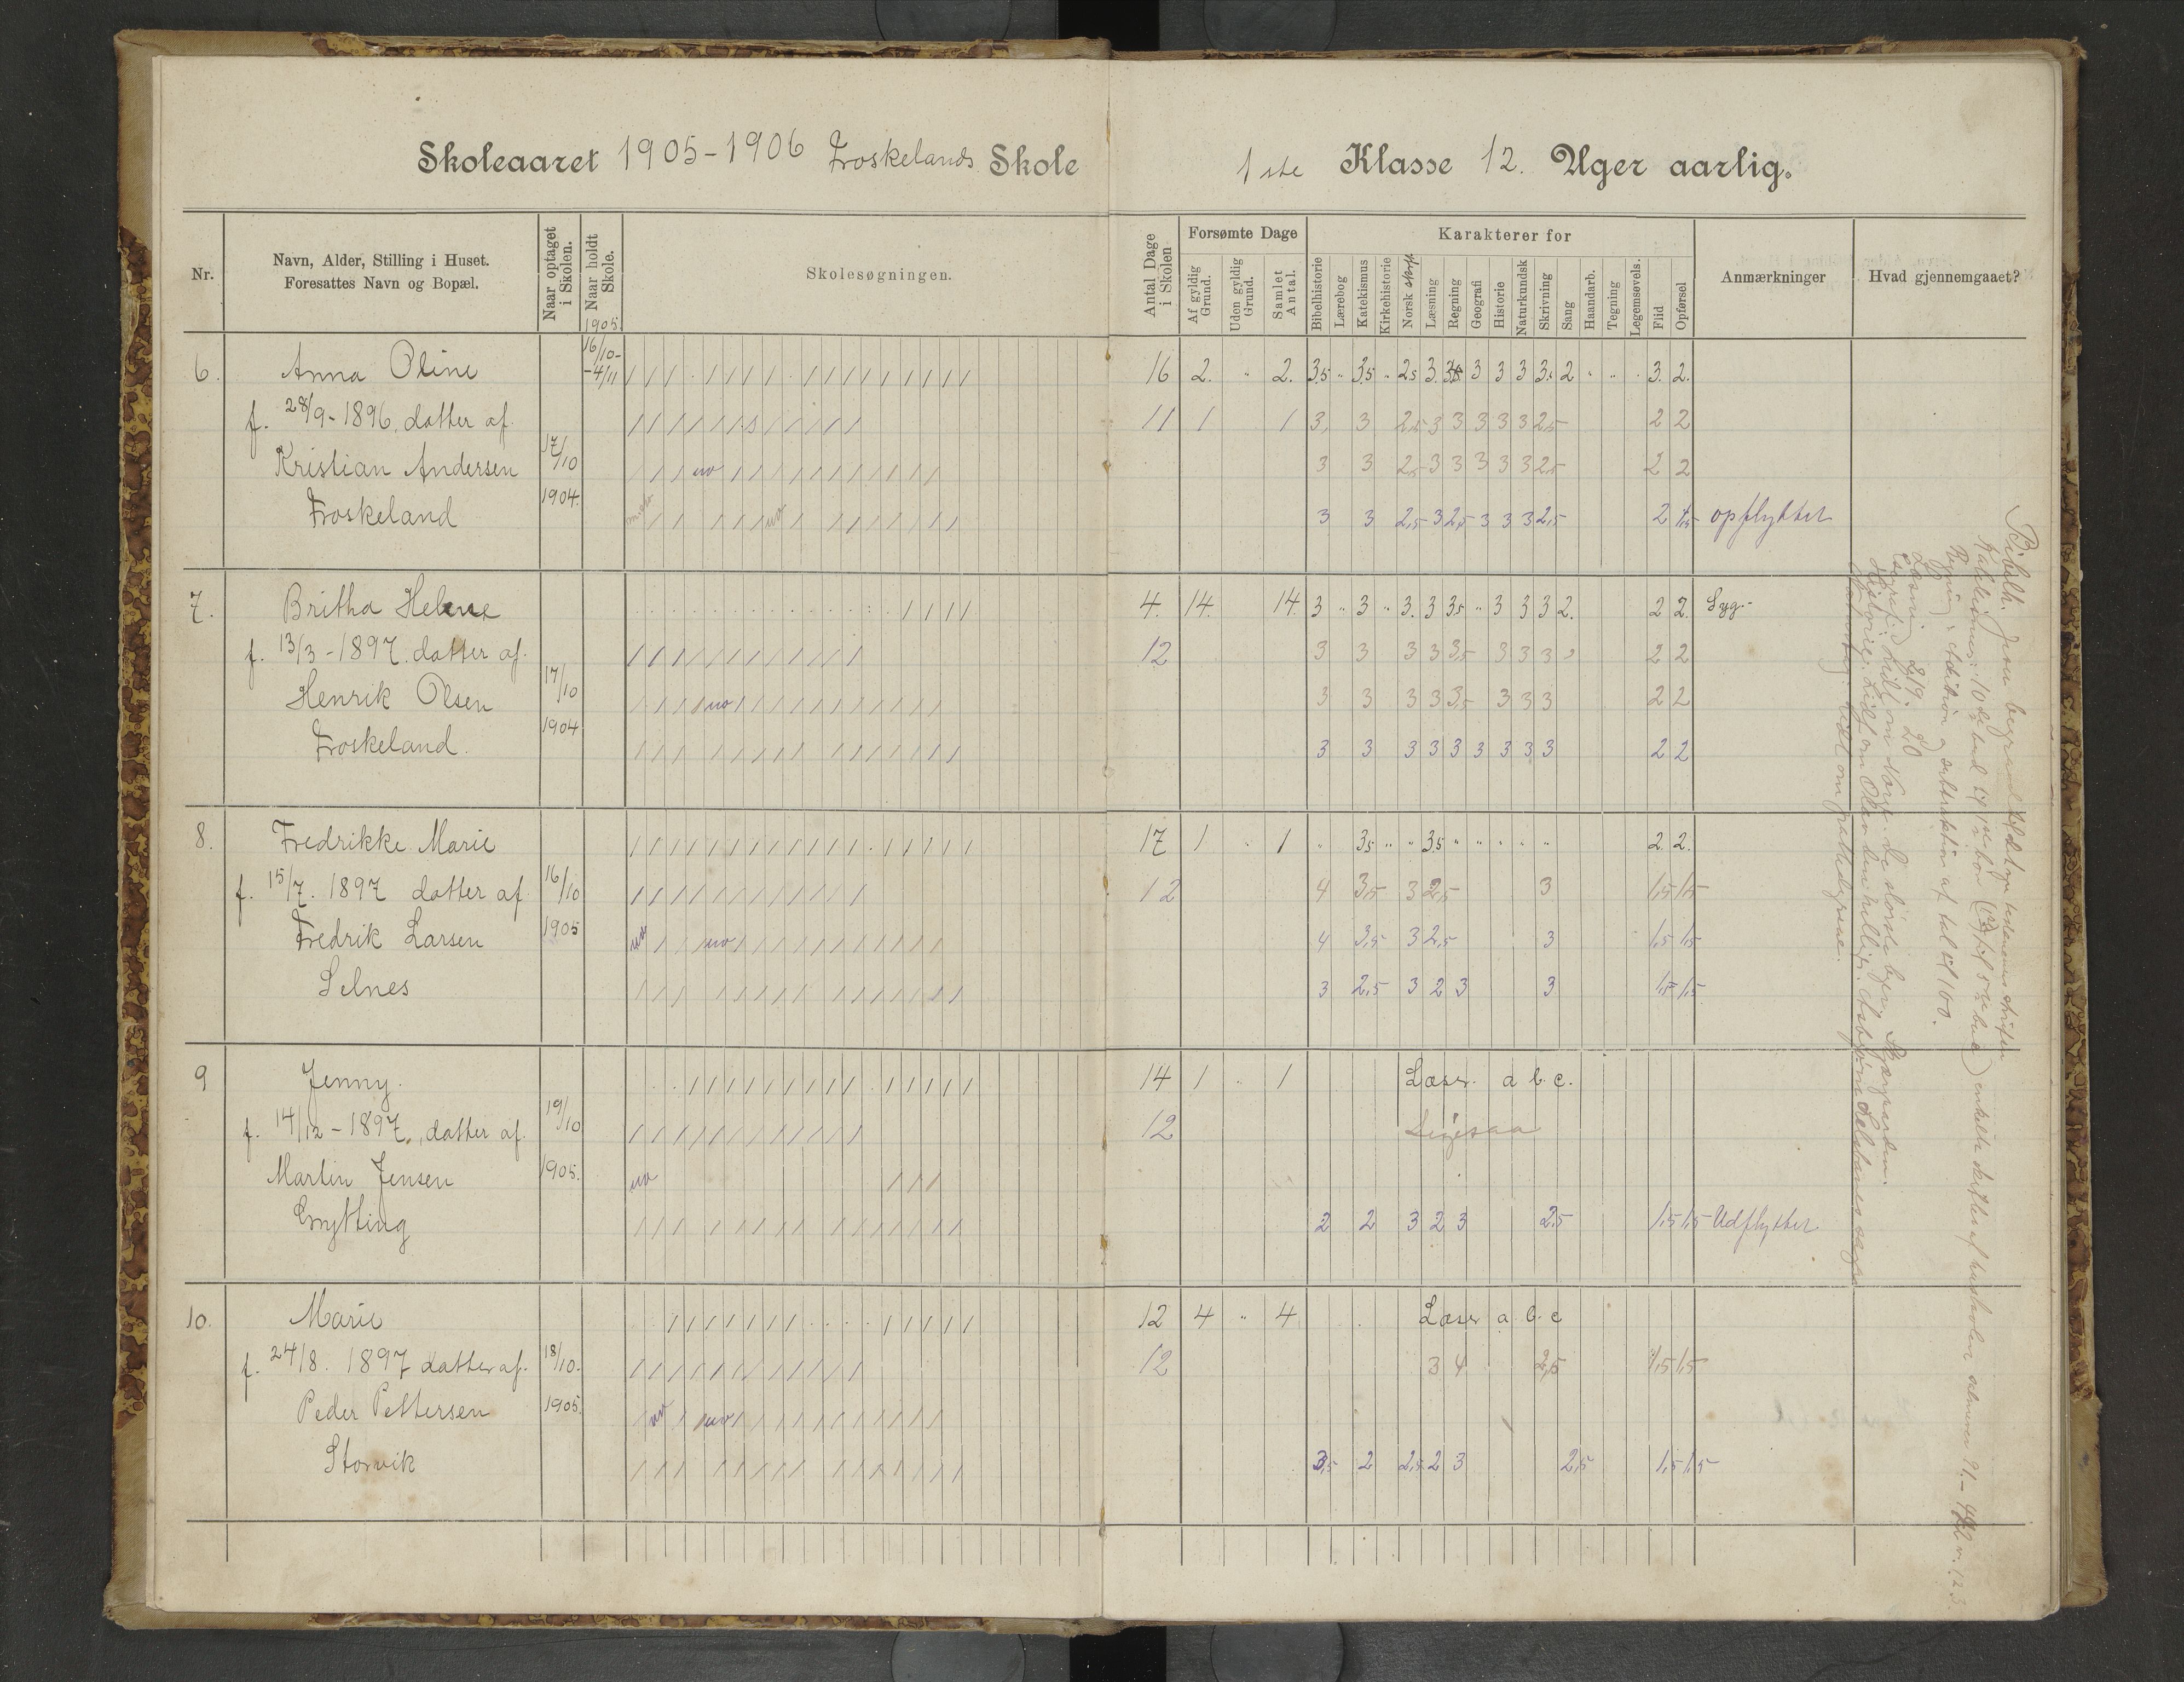 Skoleaaret 1905-1906 Froskelands Skole
1ste Klasse 12. Uger aarlig.
Nr.
Navn, Alder, Stilling i Huset.
Foresattes Navn og Bopæl.
Naar optaget i Skolen.
Naar holdt Skole.
1905.
Skolesøgningen.
Antal Dage i Skolen
Forsømte Dage
Af gyldig Grund.
Uden gyldig Grund.
Samlet Antal.
Karakterer for
Bibelhistorie
Lærebog
Katekismus
Kirkehistorie
Norsk skriftl.
Læsning
Regning
Geografi
Historie
Naturkundsk
Skrivning
Sang
Haandarb.
Tegning
Legemsøvels.
Flid
Opførsel
Anmærkninger
Hvad gjennemgaaet?
6. Anna Oline 16/10- -4/11 16 2. " 2. 3.5 " 3.5 " 2.5 3. 3 3 3 3. 2 " " 3. 2.
f. 28/9-1896, datter af. 11 1 1 3, 3 2,5 3 3 3 3 3 2,5 2 2
Kristian Andersen 17/10 uv 3 3 2,5 3 3 3 3 3 2,5 2 2
Froskeland 1904. uv 3 3 2,5 3 2,5 3 3 3 2,5 2 1,5 opflyttet
7. Britha Helene 4. 14. 14. 3 " 3 " 3. 3 3.5 " 3 3 3 2. 2 2. Syg.
f. 13/3-1897. datter af. 12 3 3 3 3 3,5 3 3 3 2 2
Henrik Olsen 17/10 uv 3 3 3 3 3,5 3 3 3 2 2
Froskeland. 1904 3 3 3 3 3 3 3 3 3 2 2
8. Fredrikke Marie 17 1 " 1 " 3.5 " " 3.5 " " " " " 2. 2.
f. 15/7. 1897 datter af 16/10 12 4 3,5 3 2,5 3 1,5 1,5
Fredrik Larsen 1905 uv uv 4 3,5 3 2,5 3 1,5 1,5
Selnes 3 2,5 3 2 3 3 1,5 1,5
9 Jenny. 14 1 " 1 Læser a b. c.
f. 14/12-1897, datter af. 19/10 12 Ligesaa
Martin Jensen 1905. uv
Grytting 2 2 3 2 3 2,5 1,5 1,5 Udflyttet
10. Marie 12 4 " 4 Læser a b. c
f. 24/8. 1897 datter af. 18/10. 12 3 4 2,5 1,5 1,5
Peder Pettersen 1905. uv uv
Storvik 3,5 2 2,5 2 3 2,5 1,5 1,5
Bibelh. Jesu
Katekismus: 10de bud til
Regning: Addition og subtraktion af tal til 100.
Læsn. 19. 20
Geografi: Lidt om Norge. De største byer.
Historie: Lidt om Olav den hellige.